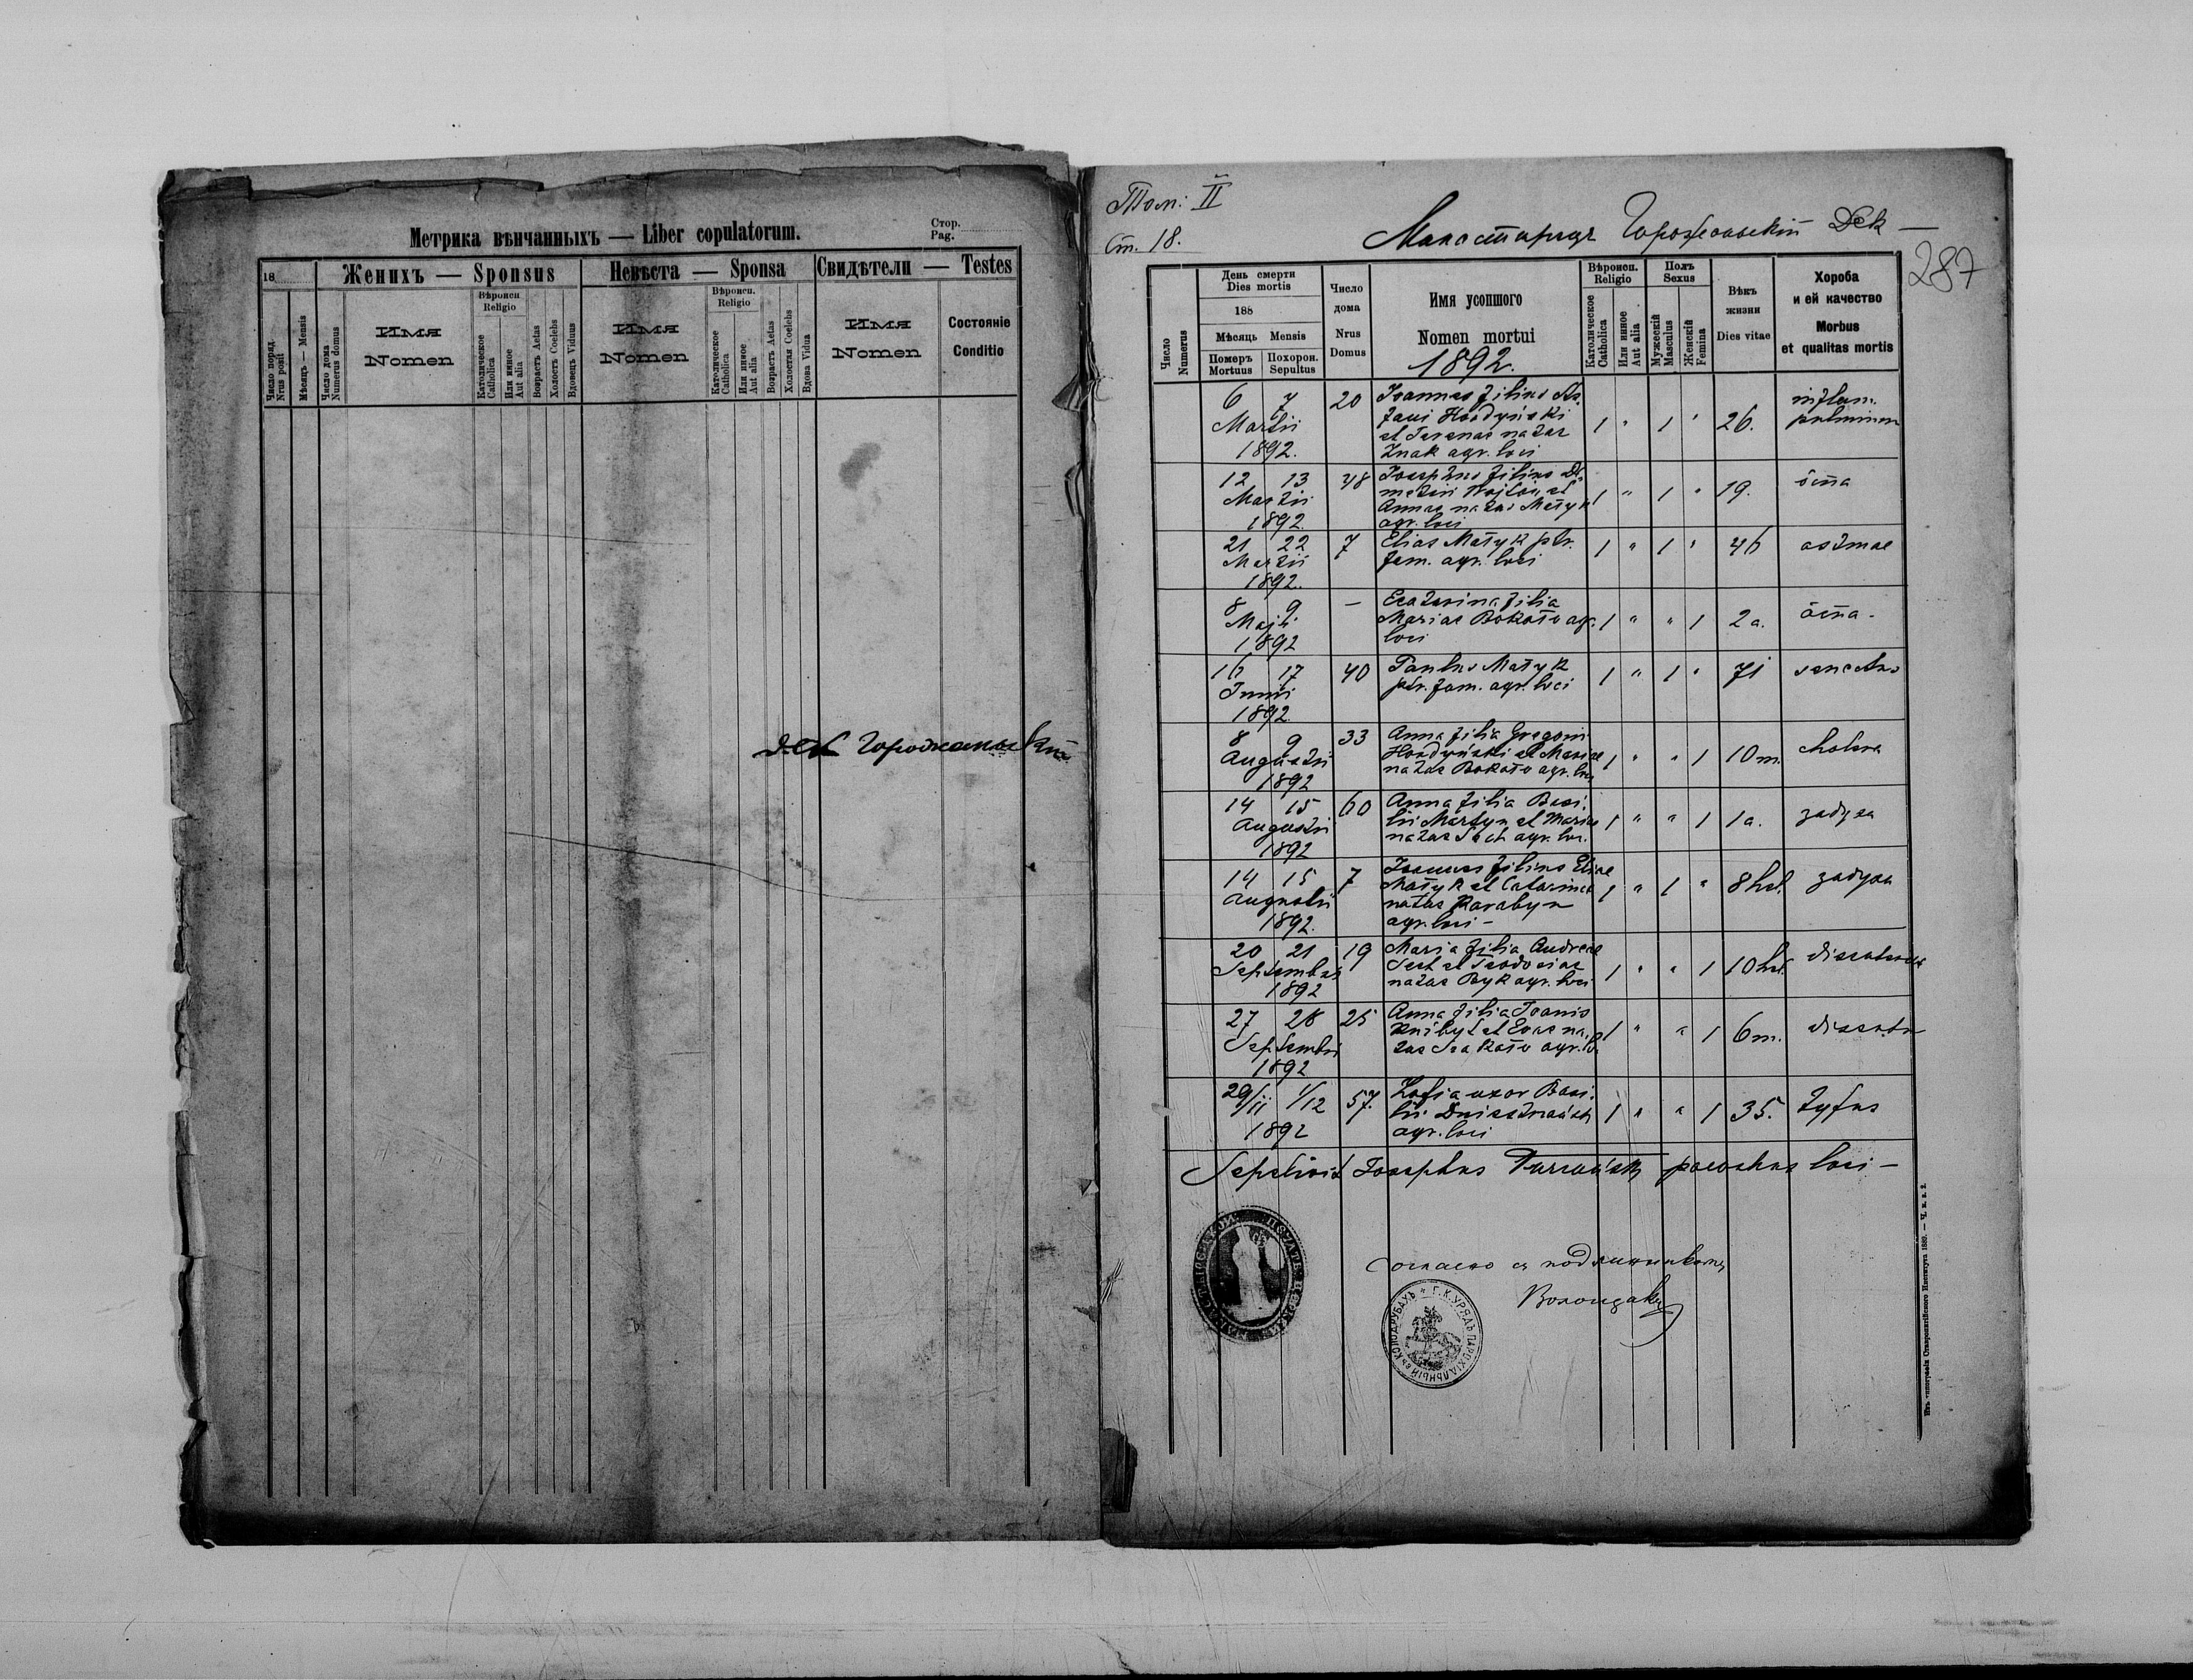 Метрика вѣнчанныхъ — Liber copulatorum.
Стор.
Pag.
18
Женихъ — Sponsus
Невѣста — Sponsa
Свидѣтели — Testes
Число поряд.
Nrus posit
Мѣсяць — Mensis
Число дома
Numerus domus
Имя
Nomen
Вѣроисп.
Religio
Католическое
Catholica
Или инное
Aut alia
Возрастъ Aetas
Холостъ Coelebs
Вдовецъ Viduus
Имя
Nomen
Вѣроисп.
Religio
Католическое
Catholica
Или инное
Aut alia
Возрастъ Aetas
Холостая Coelebs
Вдова Vidua
Имя
Nomen
Состояніе
Conditio
Дек Горожаньскій
Том: II
Ст. 18.
Манастирець Горожаньскій Дек —
287
Число
Numerus
День смерти
Dies mortis
188
Мѣсяць Mensis
Померъ
Mortuus
Похорон.
Sepultus
Число
дома
Nrus
Domus
Имя усопшого
Nomen mortui
1892.
Вѣроисп.
Religio
Католическое
Catholica
Или инное
Aut alia
Полъ
Sexus
Мужескій
Masculus
Женскій
Femina
Вѣкъ
жизни
Dies vitae
Хороба
и ей качество
Morbus
et qualitas mortis
6 7 20 Joannes filius
Hordyński
Martii 1 " 1 " 26. inflam.
1892. Znak agr. loci
12 13 48 Josephus filius De-
Martii metrii Wojtów et 1 " 1 " 19. ôспа
Annae natae Matyk
1892. agr. loci
21 22 7 Elias Matyk ptr. 1 " 1 " 46 astmae
Martii fam. agr. loci
1892.
8 9 — Ecaterina filia
Maji Mariae Bokało agr. 1 " " 1 2 a. ôспа -
1892 loci
16 17 40 Paulus Matyk 1 " 1 " 71 senectus
Junii ptr. fam. agr. loci
1892.
8 9 33 Anna filia Gregorii
Augustii Hordyński et Mariae 1 " " 1 10 m. cholera
1892 natae Bokało agr. loci
14 15 60 Anna filia Basi-
Augustii lii Martyn et Mariae 1 " " 1 1 a.
1892 natae Sech agr. loci.
14 15 7 Joannes filius Eliae
Augustii Matyk et Catarinae 1 " 1 " 8 hd.
natae Karabyn
1892. agr. loci -
20 21 19 Maria filia Andreae
Septembris Sech et Teodosiae 1 " " 1 10 hd.
1892 natae Byk agr. loci
27 28 25 Anna filia Joanis
Septembris et Evae na- 1 " " 1 6 m.
1892 tae agr. l.
29/11 1/12 57. Zofia uxor Basi-
lii 1 " " 1 35. tyfus
1892 agr. loci
Sepelivit Josephus parochus loci —
Согласно съ подлинникомъ
Г. К. УРЯДЪ ПАРОХІАЛЬНЫЙ въ КОЛОДРУБАХЪ
Изъ типографіи Ставропигійского Института 1889. — Ч. в. з. 2.